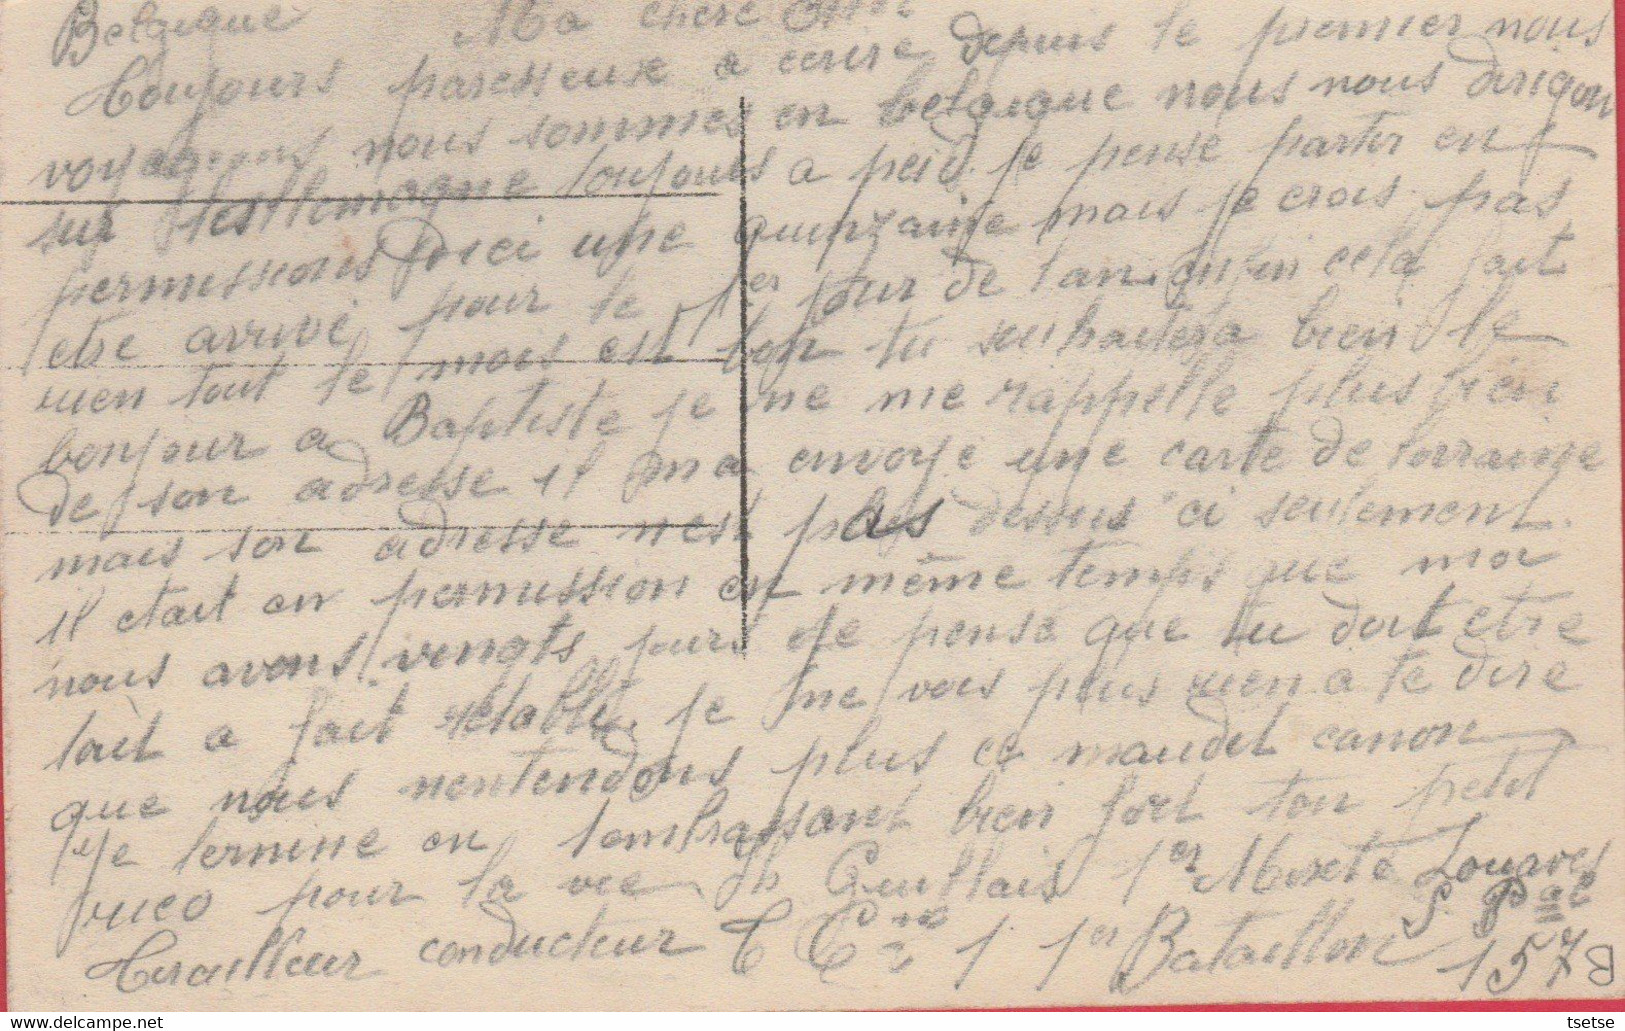 Belgique Ma chere
Toujours paresseuse a ecrire depuis le premier nous
voyageons nous sommes en belgique nous nous dirigon
sur toujours a peid. je pense partir en
permissions voici une quinzaine mais je crois pas
etre arrivé pour le 1er jour de lan. enfin cela fait
rien tout le mois est bon tu souhaitera bien le
bonjour a Baptiste je ne me rappelle plus bien
de son adresse il ma envoye une carte de lorraine
mais son adresse nest pas dessus ci seulement
il etait en permission en même temps que moi
nous avons vingts jours je pense que tu doit etre
tait a fait retabli. je ne vois plus rien a te dire
que nous nentendons plus ce maudit canon
je termine en tembrassant bien fort ton petit
pour la vie 1er Mixte Zouaves
Tirailleur conducteur 1 1er Bataillon S. P.
157 B
tsetse